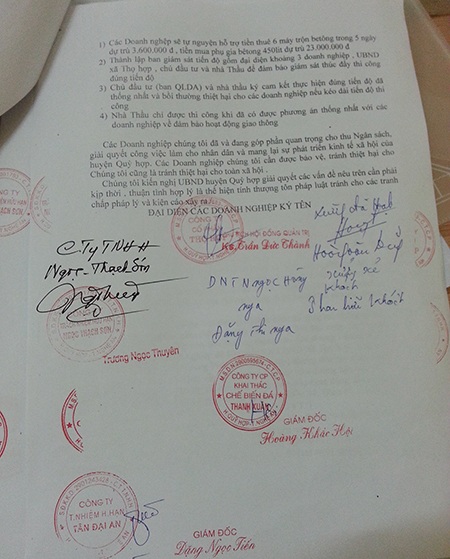 1) Các Doanh nghiệp sẽ tự nguyện hỗ trợ tiền thuê 6 máy trộn betông trong 5 ngày
dự trù 3.600.000 đ , tiền mua phụ gia bêtong 450lit dự trù 23.000.000 đ
2) Thành lập ban giám sát tiến độ gồm đại diện khoảng 3 doanh nghiệp , UBND
xã Thọ hợp , chủ đầu tư và nhà Thầu để đảm bảo giám sát thúc đẩy thi công
đúng tiến độ
3) Chủ đầu tư (ban QLDA) và nhà thầu ký cam kết thực hiện đúng tiến độ đã
thống nhất và bồi thường thiệt hại cho các doanh nghiệp nếu kéo dài tiến độ thi
công
4) Nhà Thầu chỉ được thi công khi đã có được phương án thống nhất với các
doanh nghiệp về đảm bảo hoạt động giao thông
Các Doanh nghiệp chúng tôi đã và đang góp phần quan trọng cho thu Ngân sách,
giải quyết công việc làm cho nhân dân và mang lại sự phát triển kinh tế xã hội của
huyện Quỳ hợp. Các Doanh nghiệp chúng tôi cần được bảo vệ, tránh thiệt hại cho
Chúng tôi cũng là tránh thiệt hại cho toàn xã hội .
Chúng tôi kiến nghị UBND huyện Quỳ hợp giải quyết các vấn đề nêu trên cần phải
kịp thời , thuận tình hợp lý là thể hiện tính thượng tôn pháp luật tránh cho các tranh
chấp pháp lý và kiện cáo xảy ra .
ĐẠI DIỆN CÁC DOANH NGHIỆP KÝ TÊN
CHỦ TỊCH HỘI ĐỒNG QUẢN TRỊ
Ks. Trần Đức Chành
CTy TNHH
Ngọc - Thạch Sơn
NGỌC THẠCH SƠN
Trương Ngọc Thuyên
DNT Ngọc Hồng
nga
Đặng thi nga
CÔNG TY CP
KHAI THÁC
CHẾ BIẾN ĐÁ
THANH XUÂN
GIÁM ĐỐC
Hoàng Khắc
CÔNG TY
T.NHIỆM H.HẠN
TÂN ĐẠI AN
GIÁM ĐỐC
Đặng Ngọc Tiến